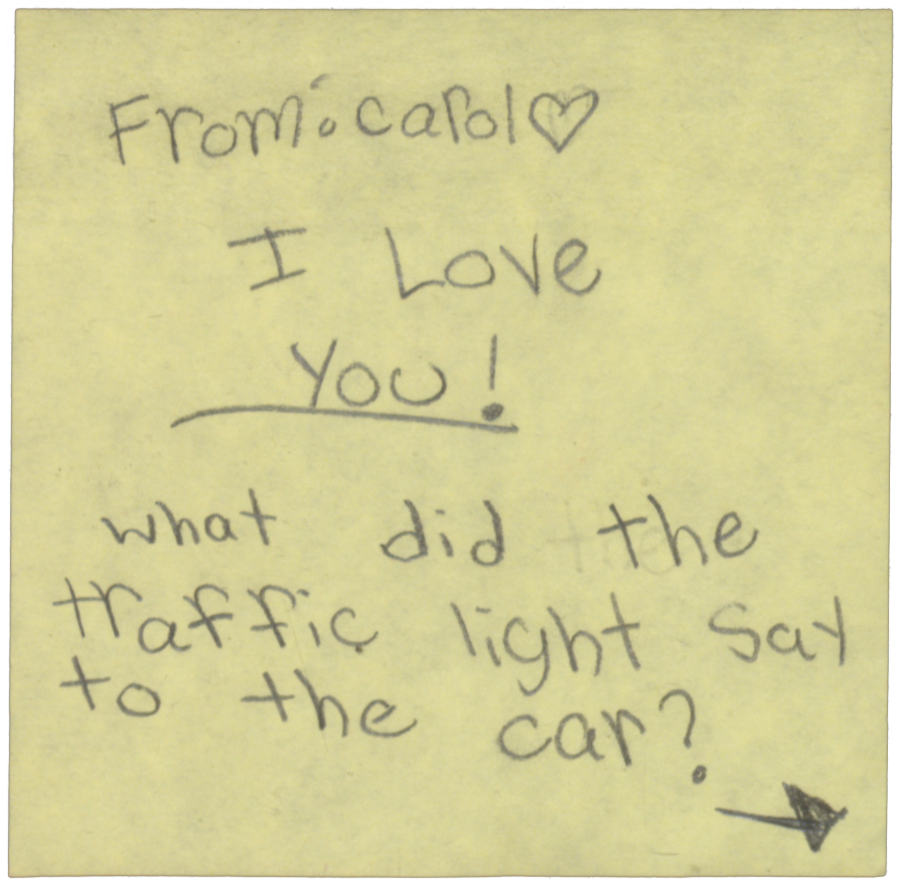 From: carol♡
I Love
You!
what did the
traffic light say
to the car?
→